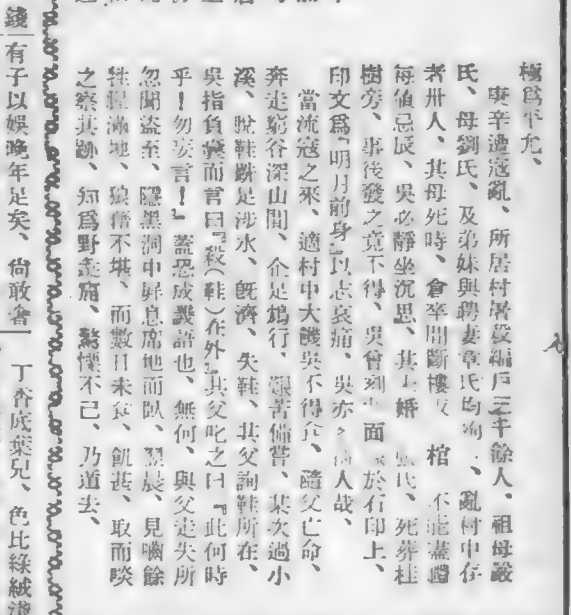 極爲平允、
庚辛遭寇亂、所居村屠殺編戶三千餘人、祖母嚴
氏、母劉氏、及弟妹與聘妻章氏均殉、亂村中存
者卅人、其母死時、倉卒間斷樓板 棺 不能蓋
每值忌辰、吳必靜坐沉思、其 婚 氏、死葬桂
樹旁、事後發之竟不得、吳曾刻 面 於石印上、
印文爲『明月前身』以志哀痛、吳亦 人哉、
當流寇之來、適村中大譏吳不得食、隨父亡命、
奔走窮谷深山間、企足鶴行、艱苦備嘗、某次過小
溪、脫鞋跣足涉水、旣濟、失鞋、其父詢鞋所在、
吳指負囊而言曰『殺(鞋)在外』其父叱之曰『此何時
乎!勿妄言!』蓋恐成讖語也、無何、與父走失所
忽聞盜至、隱黑洞中屛息席地而臥、翌晨、見嚙餘
牲 滿地、狼藉不堪、而數日未食、飢甚、取而啖
之察其跡、知爲野 窟、驚慄不已、乃遁去、
錢 有子以娛晚年足矣、尙敢奢
丁香底葉兒、色比綠絨淺